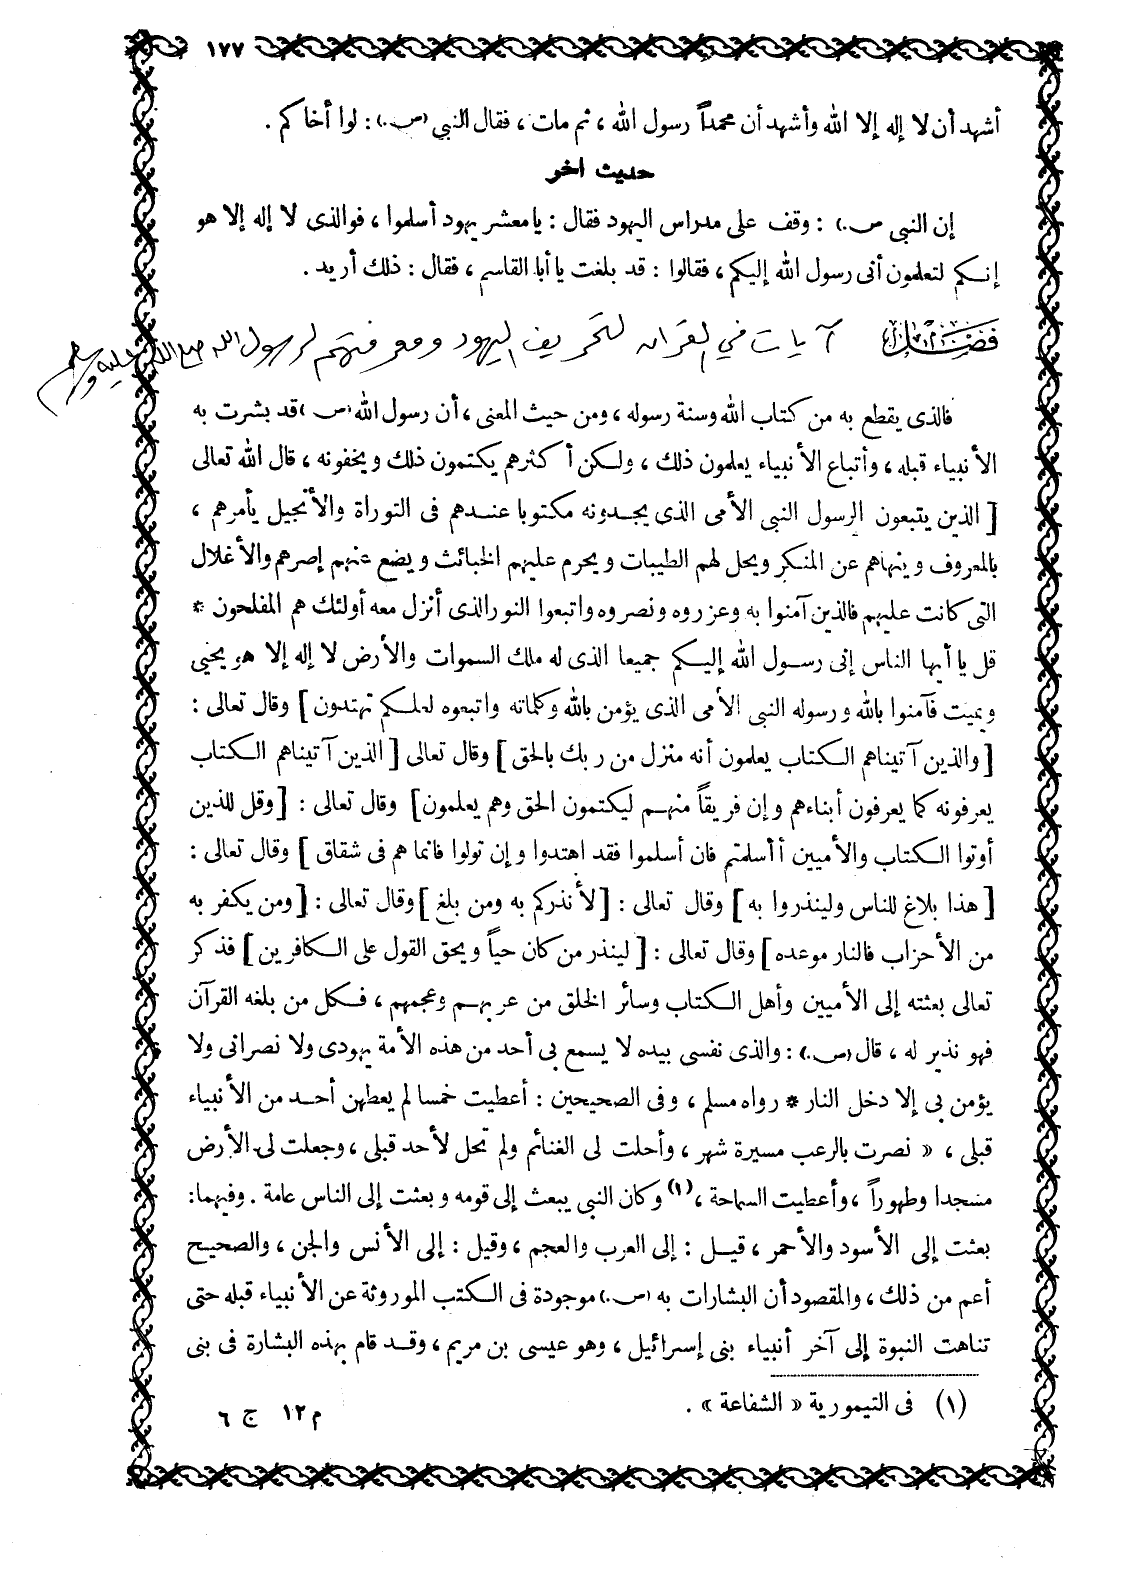 ١٧٧
أشهد أن لا إله إلا الله وأشهد أن محمداً رسول الله ، ثم مات ، فقال النبي (ص.) : لوا أخاكم .
حديث اخر
إن النبى ص.) : وقف على مدراس اليهود فقال : يا معشر يهود أسلموا ، فوالذى لا إله إلا هو
إنكم لتعلمون أنى رسول الله إليكم ، فقالوا : قد بلغت يا أبا القاسم ، فقال : ذلك أريد .
فصل آيات في القرآن لتحريف اليهود ومعرفتهم لرسول الله صلى الله عليه وسلم
فالذى يقطع به من كتاب الله وسنة رسوله ، ومن حيث المعنى ، أن رسول الله (ص) قد بشرت به
الأنبياء قبله ، وأتباع الأنبياء يعلمون ذلك ، ولكن أكثرهم يكتمون ذلك ويخفونه ، قال الله تعالى
[ الذين يتبعون الرسول النبى الأمى الذى يجدونه مكتوبا عندهم فى التوراة والأنجيل يأمرهم ،
بالمعروف وينهاهم عن المنكر ويحل لهم الطيبات ويحرم عليهم الخبائث ويضع عنهم إصرهم والأغلال
التى كانت عليهم فالذين آمنوا به وعزروه ونصروه واتبعوا النور الذى أنزل معه أولئك هم المفلحون *
قل يا أيها الناس إنى رسول الله إليكم جميعا الذى له ملك السموات والأرض لا إله إلا هو يحيى
ويميت فآمنوا بالله ورسوله النبى الأمى الذى يؤمن بالله وكلماته واتبعوه لعلكم تهتدون ] وقال تعالى :
[ والذين آتيناهم الكتاب يعلمون أنه منزل من ربك بالحق ] وقال تعالى [ الذين آتيناهم الكتاب
يعرفونه كما يعرفون أبناءهم وإن فريقاً منهم ليكتمون الحق وهم يعلمون ] وقال تعالى : [ وقل للذين
أوتوا الكتاب والأميين أأسلمتم فان أسلموا فقد اهتدوا وإن تولوا فانما هم فى شقاق ] وقال تعالى :
[ هذا بلاغ للناس ولينذروا به ] وقال تعالى : [ لأنذركم به ومن بلغ ] وقال تعالى : [ ومن يكفر به
من الأحزاب فالنار موعده ] وقال تعالى : [ لينذر من كان حياً ويحق القول على الكافرين ] فذكر
تعالى بعثته إلى الأميين وأهل الكتاب وسائر الخلق من عربهم وعجمهم ، فكل من بلغه القرآن
فهو نذير له ، قال (ص.) : والذى نفسى بيده لا يسمع بى أحد من هذه الأمة يهودى ولا نصرانى ولا
يؤمن بى إلا دخل النار * رواه مسلم ، وفى الصحيحين : أعطيت خمسا لم يعطهن أحد من الأنبياء
قبلى ، « نصرت بالرعب مسيرة شهر ، وأحلت لى الغنائم ولم تحل لأحد قبلى ، وجعلت لى الأرض
مسجدا وطهوراً ، وأعطيت السماحة ،(١) وكان النبي يبعث إلى قومه وبعثت إلى الناس عامة . وفيهما:
بعثت إلى الأسود والأحمر ، قيل : إلى العرب والعجم ، وقيل : إلى الأنس والجن ، والصحيح
أعم من ذلك ، والمقصود أن البشارات به (ص.) موجودة فى الكتب الموروثة عن الأنبياء قبله حتى
تناهت النبوة إلى آخر أنبياء بنى إسرائيل ، وهو عيسى بن مريم ، وقد قام بهذه البشارة فى بنى
(١) فى التيمورية « الشفاعة » .
م ١٢ ج ٦